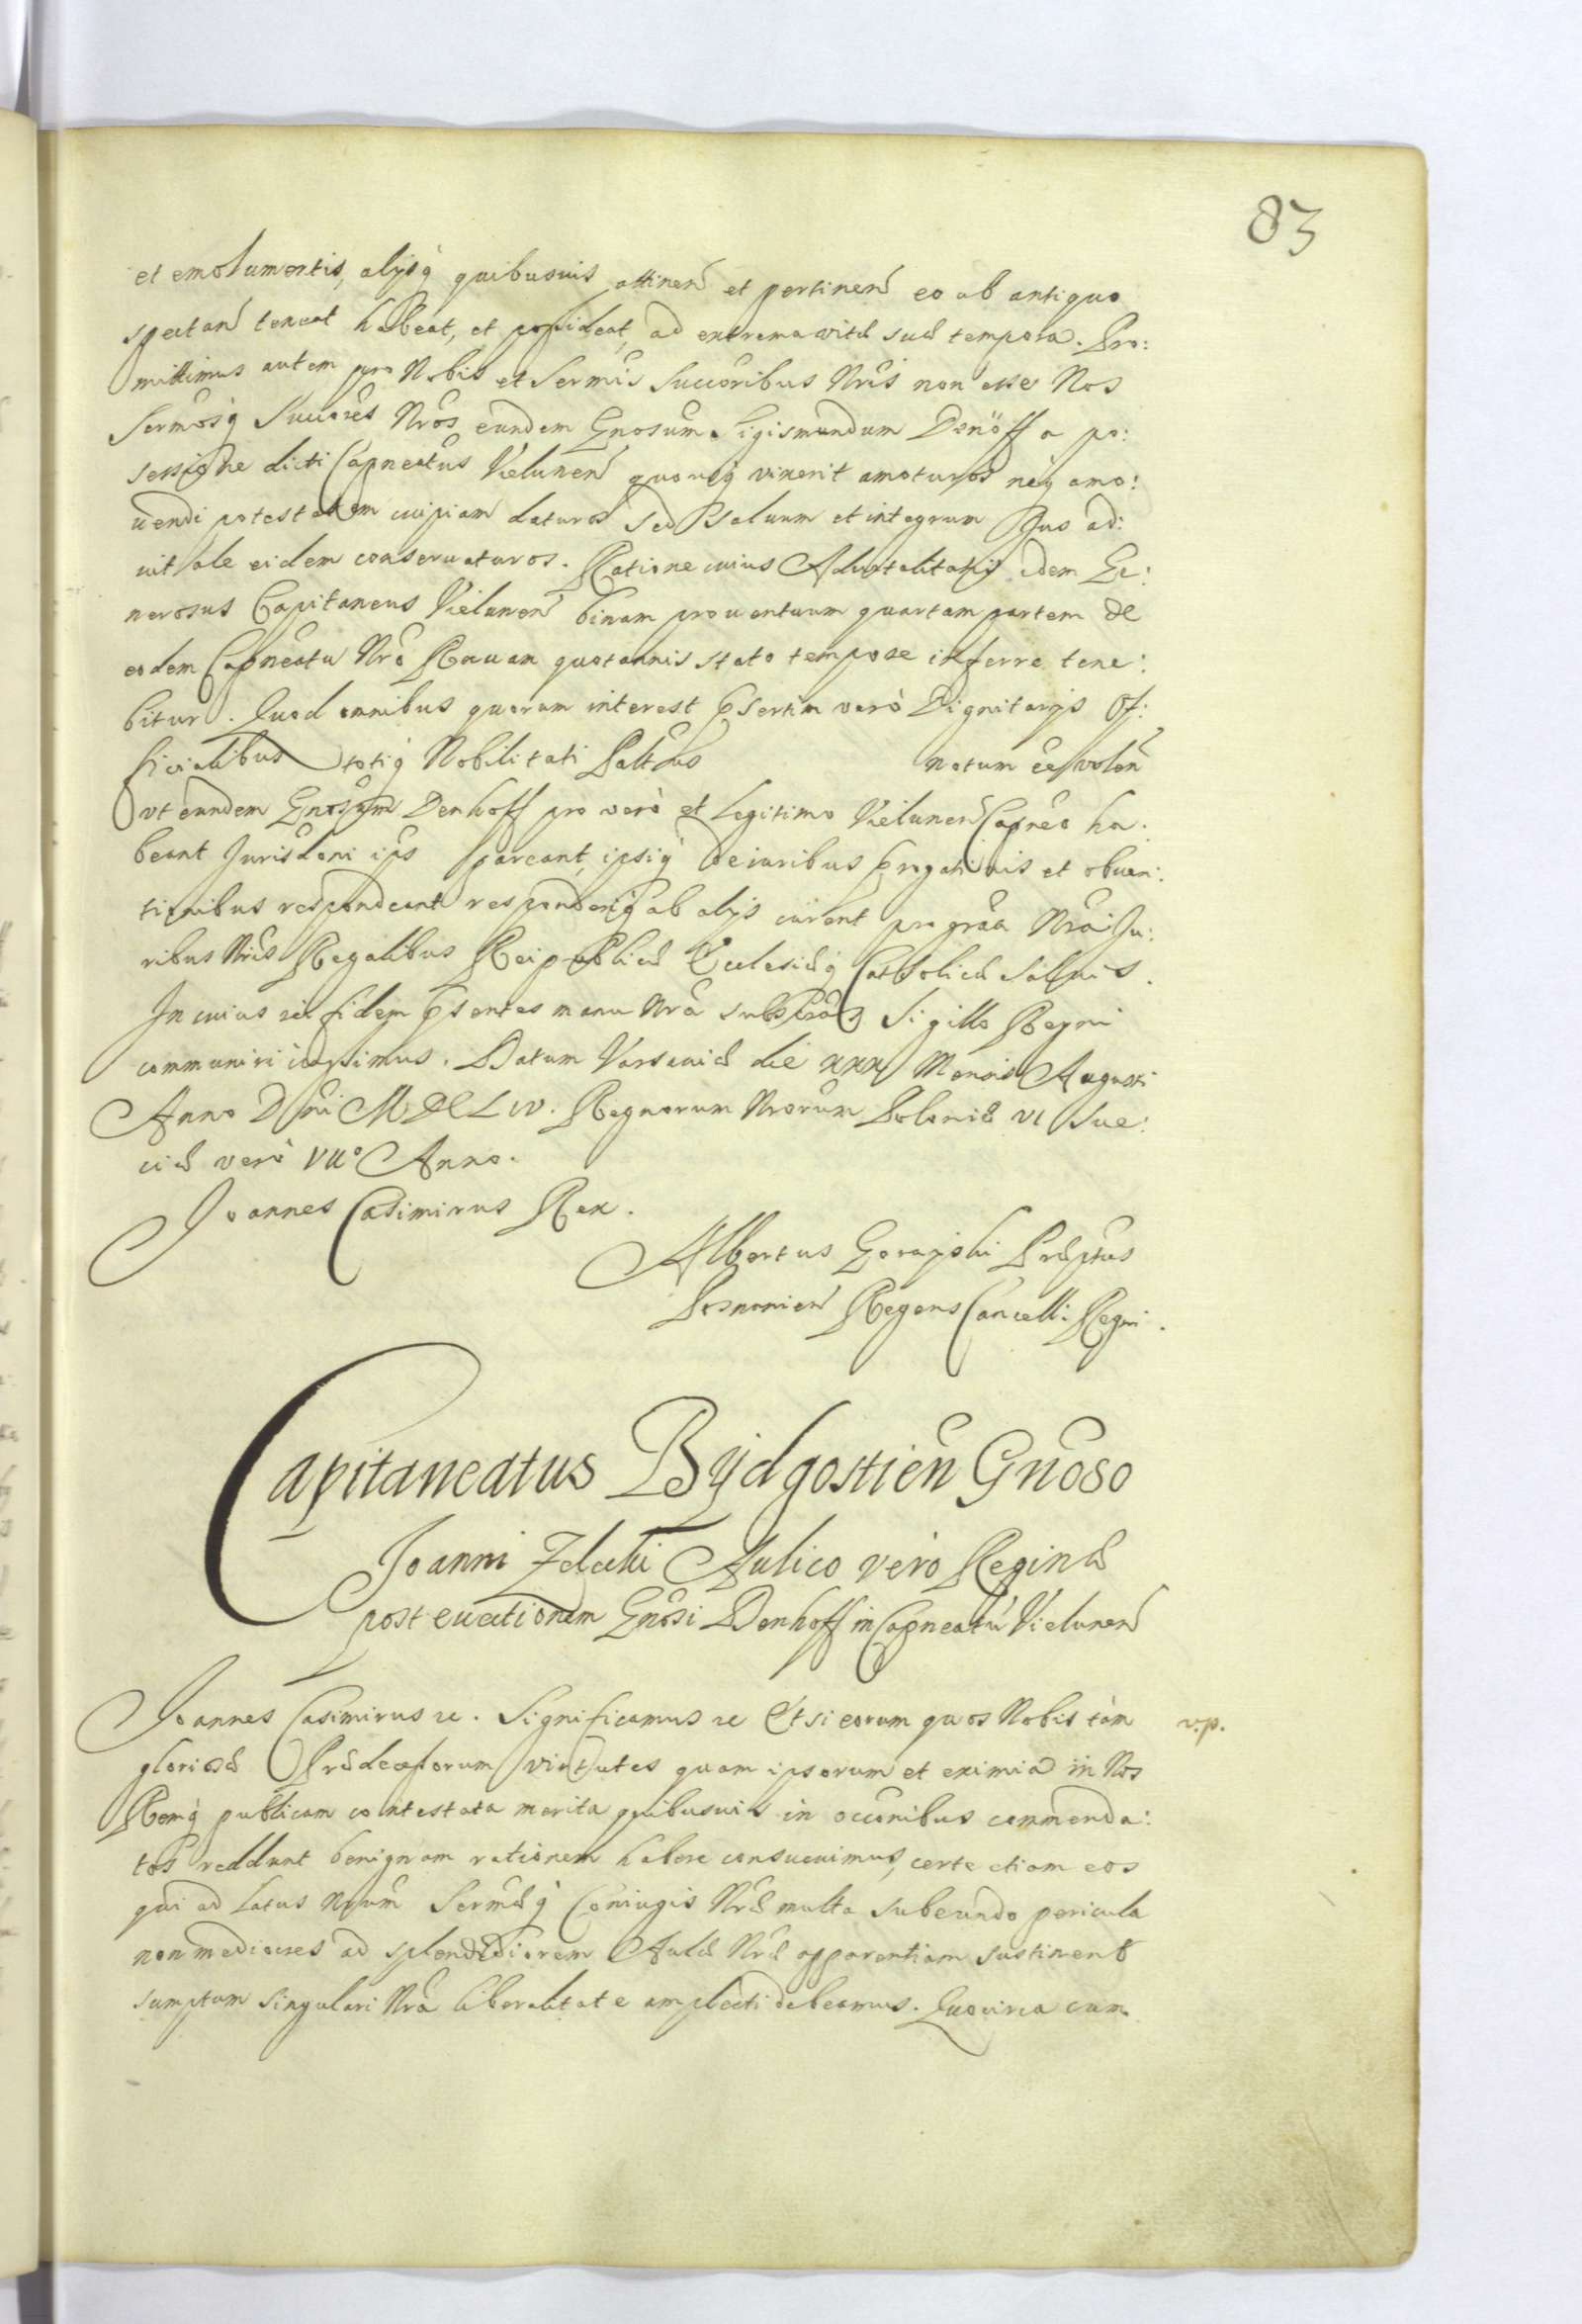 83
et emolumentis, alijsq̀ quibusuis attinen̄ et pertinen̄ eo ab antiquo
spectan̄ teneat habeat, et possideat, ad extrema vitæ suæ tempora. Pro:
mittimus autem pro Nobis et Sermis Succoribus Nris non esse Nos
Sermosq̀ Succores Nros eundem Gnosum Sigismundum Denöff a po:
sessione dicti Capneatus Vielunen̄ quousq̀ vixerit amoturos neq̀ amo:
uendi potestatem cuipiam daturos sed saluum et integrum Jus ad:
uitale eidem conseruaturos. Ratione cuius Aduitalitatis idem Ge:
nerosus Capitaneus Vielunen̄ binam prouentuum quartam partem de
eodem Capneatu Nro Rauam quotannis stato tempore inferre tene:
bitur. Quod omnibus quorum interest pserti̇m verò Dignitarijs Of:
ficialibus totiq̀ Nobilitati Paltus notum ee volen̄
vt eundem Gnosum Denhoff pro verò et legitimo Vielunen̄ Capneo ha:
beant Jurisdoni ips pareant, ipsiq̀ de iuribus prrogatiuis et obuen:
tionibus respondeant responderiq̀ ab alijs curent pro graa Nra Ju:
ribus Nris Regalibus Reipublicæ Ecclesiæq̀ Catholicæ saluis.
In cuius rei fidem psentes manu Nra subscras Sigillo Regni
communiri iussimus. Datum Varsauiæ die xxx Mensis Augusti
Anno Dni MDCLIV. Regnorum Nrorum Poloniæ VI Sue:
ciæ verò VII° Anno.
Joannes Casimirus Rex.
Albertus Gorayski Præptus
Posnanien̄ Regens Cancell: Regni.
Capitaneatus Bÿdgostien̄ Gnoso
Joanni Zelecki Aulico verò Reginæ
post euectionem Gnosi Denhoff in Capneatu Vielunen̄
Joannes Casimirus etc. Significamus etc Etsi eorum quos Nobis tàm v.p.
gloriosæ Prædecessorum virtutes quam ipsorum et eximia in Nos
Remq̀ publicam contestata merita quibusuis in occonibus commenda:
tos reddunt benignam rationem habere consueuimus, certe etiam eos
qui ad latus Nrum Sermæq̀ Coniugis Nræ multa subeundo pericula
non mediocres ad splendidiorem Aulæ Nræ apparentiam sustinent
sumptum singulari Nra liberalitate amplecti debeamus. Quocirca cum